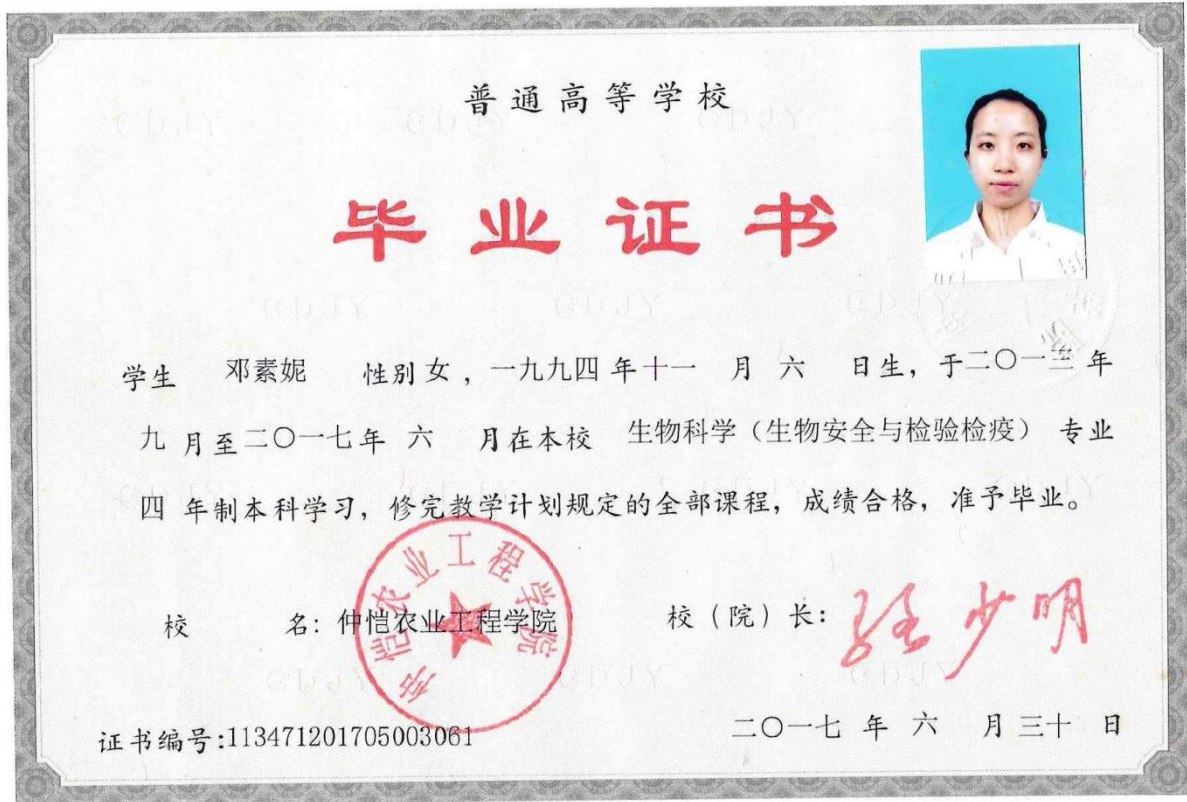 普通高等学校
毕业证书
学生 邓素妮 性别 女 ，一九九四 年 十一 月 六 日生，于二〇一三 年
九 月至二〇一七年 六 月在本校 生物科学（生物安全与检验检疫） 专业
四 年制本科学习，修完教学计划规定的全部课程，成绩合格，准予毕业。
仲恺农业工程学院
校 名：仲恺农业工程学院 校（院）长：
少明
证书编号:113471201705003061 二〇一七 年 六 月 三十 日